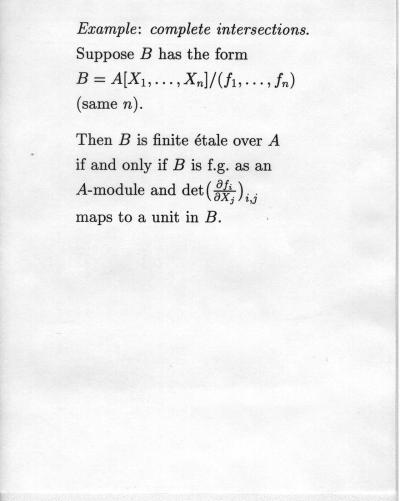 Example: complete intersections.
Suppose B has the form
B = A[X₁, . . . , Xₙ]/(f₁, . . . , fₙ)
(same n).
Then B is finite étale over A
if and only if B is f.g. as an
A-module and det(∂fᵢ/∂Xⱼ)ᵢ,ⱼ
maps to a unit in B.